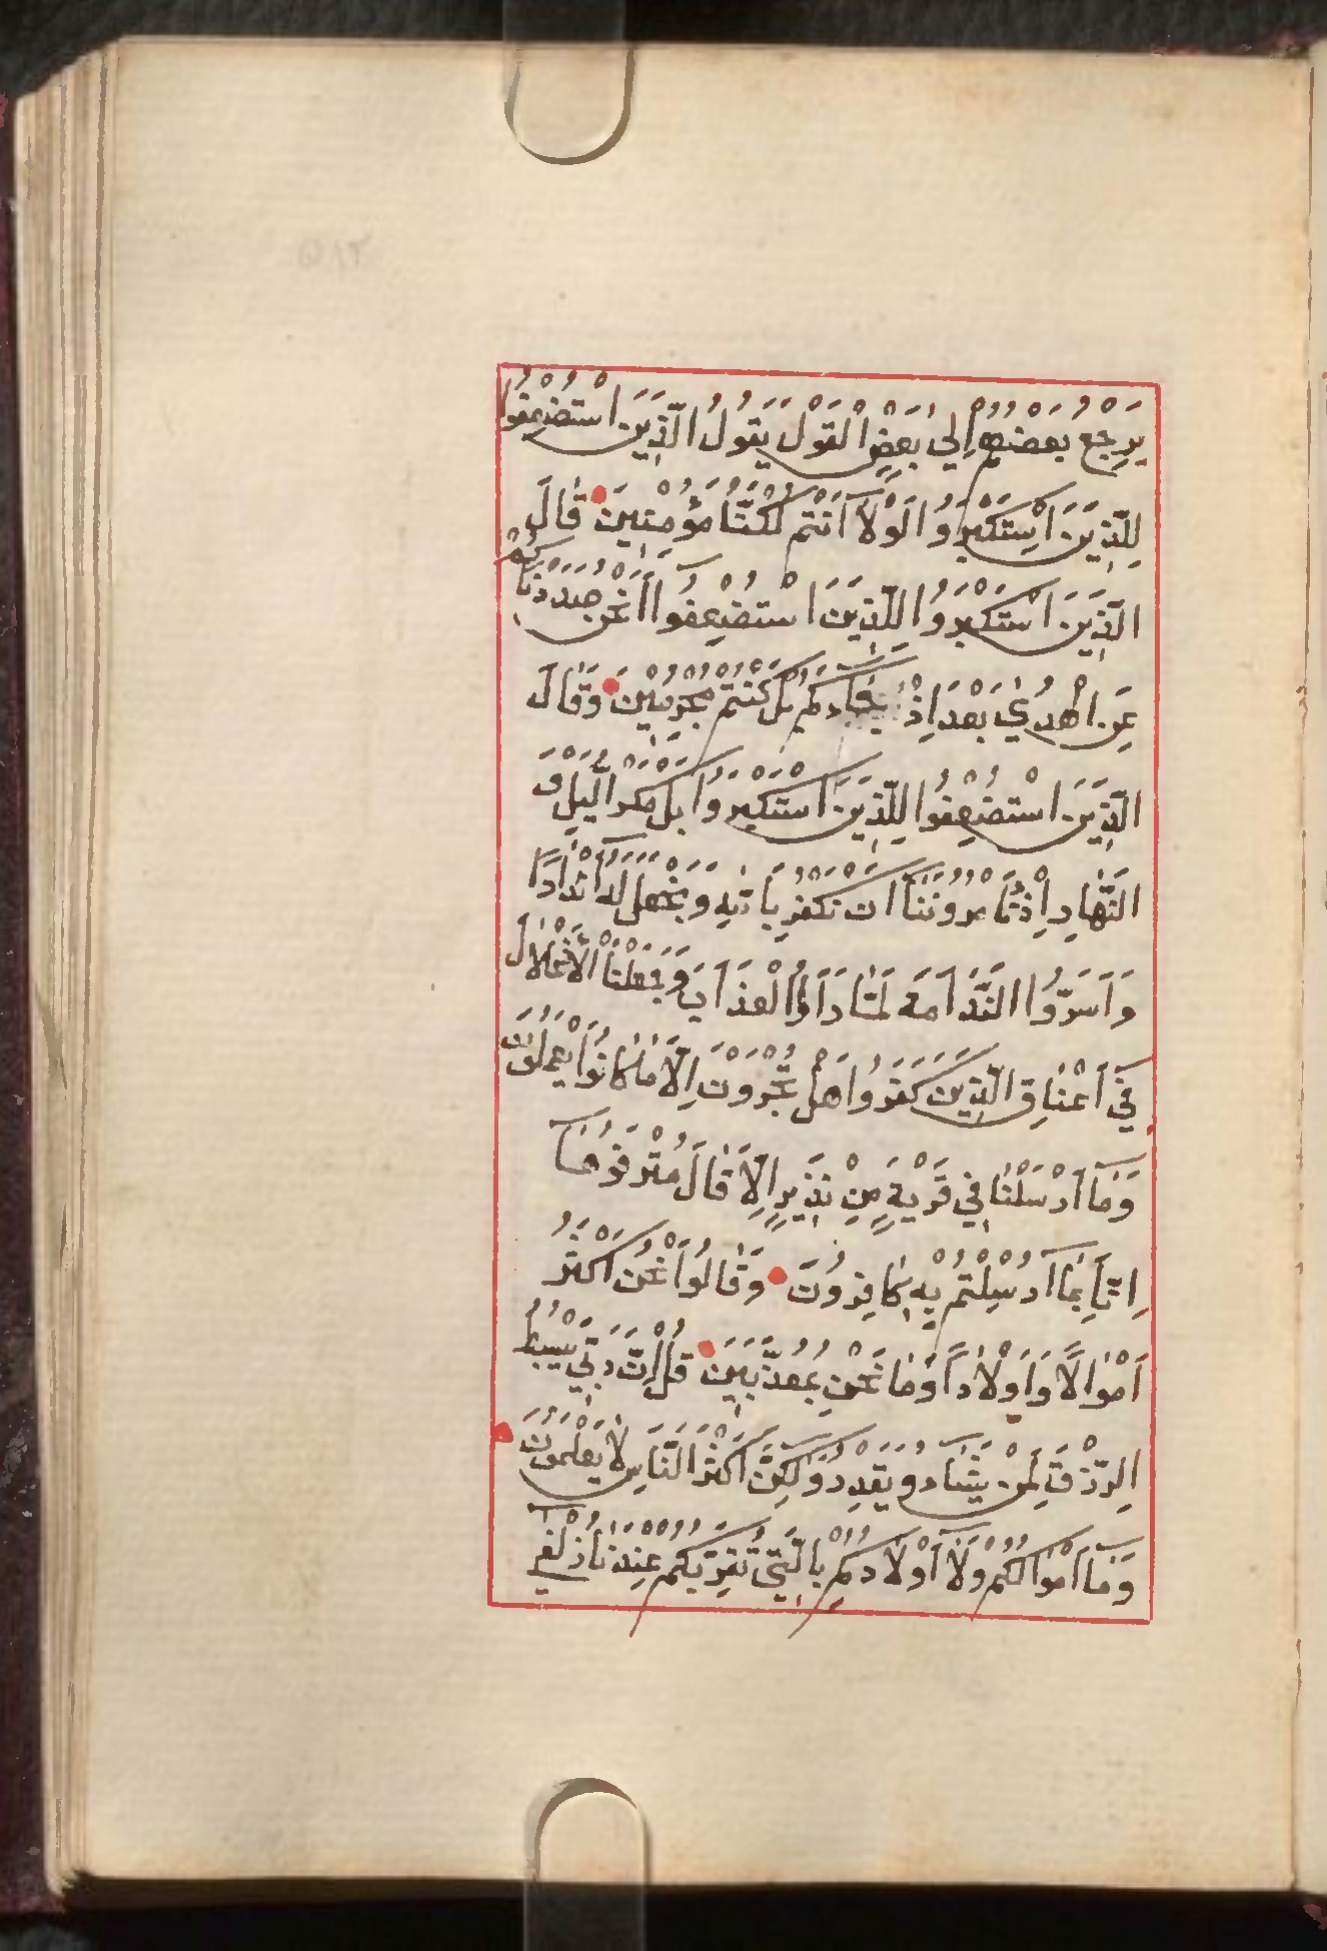 يَرْجِعُ بَعْضُهُمْ إِلَىٰ بَعْضٍ الْقَوْلَ يَقُولُ الَّذِينَ اسْتُضْعِفُوا
لِلَّذِينَ اسْتَكْبَرُوا لَوْلَا أَنْتُمْ لَكُنَّا مُؤْمِنِينَ قَالَ
الَّذِينَ اسْتَكْبَرُوا لِلَّذِينَ اسْتُضْعِفُوا أَنَحْنُ صَدَدْنَاكُمْ
عَنِ الْهُدَىٰ بَعْدَ إِذْ جَاءَكُمْ بَلْ كُنْتُمْ مُجْرِمِينَ وَقَالَ
الَّذِينَ اسْتُضْعِفُوا لِلَّذِينَ اسْتَكْبَرُوا بَلْ مَكْرُ الَّيْلِ وَ
النَّهَارِ إِذْ تَأْمُرُونَنَا أَنْ نَكْفُرَ بِاللهِ وَنَجْعَلَ لَهُ أَنْدَادًا
وَأَسَرُّوا النَّدَامَةَ لَمَّا رَأَوُا الْعَذَابَ وَجَعَلْنَا الْأَغْلَالَ
فِي أَعْنَاقِ الَّذِينَ كَفَرُوا هَلْ يُجْزَوْنَ إِلَّا مَا كَانُوا يَعْمَلُونَ
وَمَا أَرْسَلْنَا فِي قَرْيَةٍ مِنْ نَذِيرٍ إِلَّا قَالَ مُتْرَفُوهَا
إِنَّا بِمَا أُرْسِلْتُمْ بِهِ كَافِرُونَ وَقَالُوا نَحْنُ أَكْثَرُ
أَمْوَالًا وَأَوْلَادًا وَمَا نَحْنُ بِمُعَذَّبِينَ قُلْ إِنَّ رَبِّي يَبْسُطُ
الرِّزْقَ لِمَنْ يَشَاءُ وَيَقْدِرُ وَلَكِنَّ أَكْثَرَ النَّاسِ لَا يَعْلَمُونَ
وَمَا أَمْوَالُكُمْ وَلَا أَوْلَادُكُمْ بِالَّتِي تُقَرِّبُكُمْ عِنْدَنَا زُلْفَىٰ